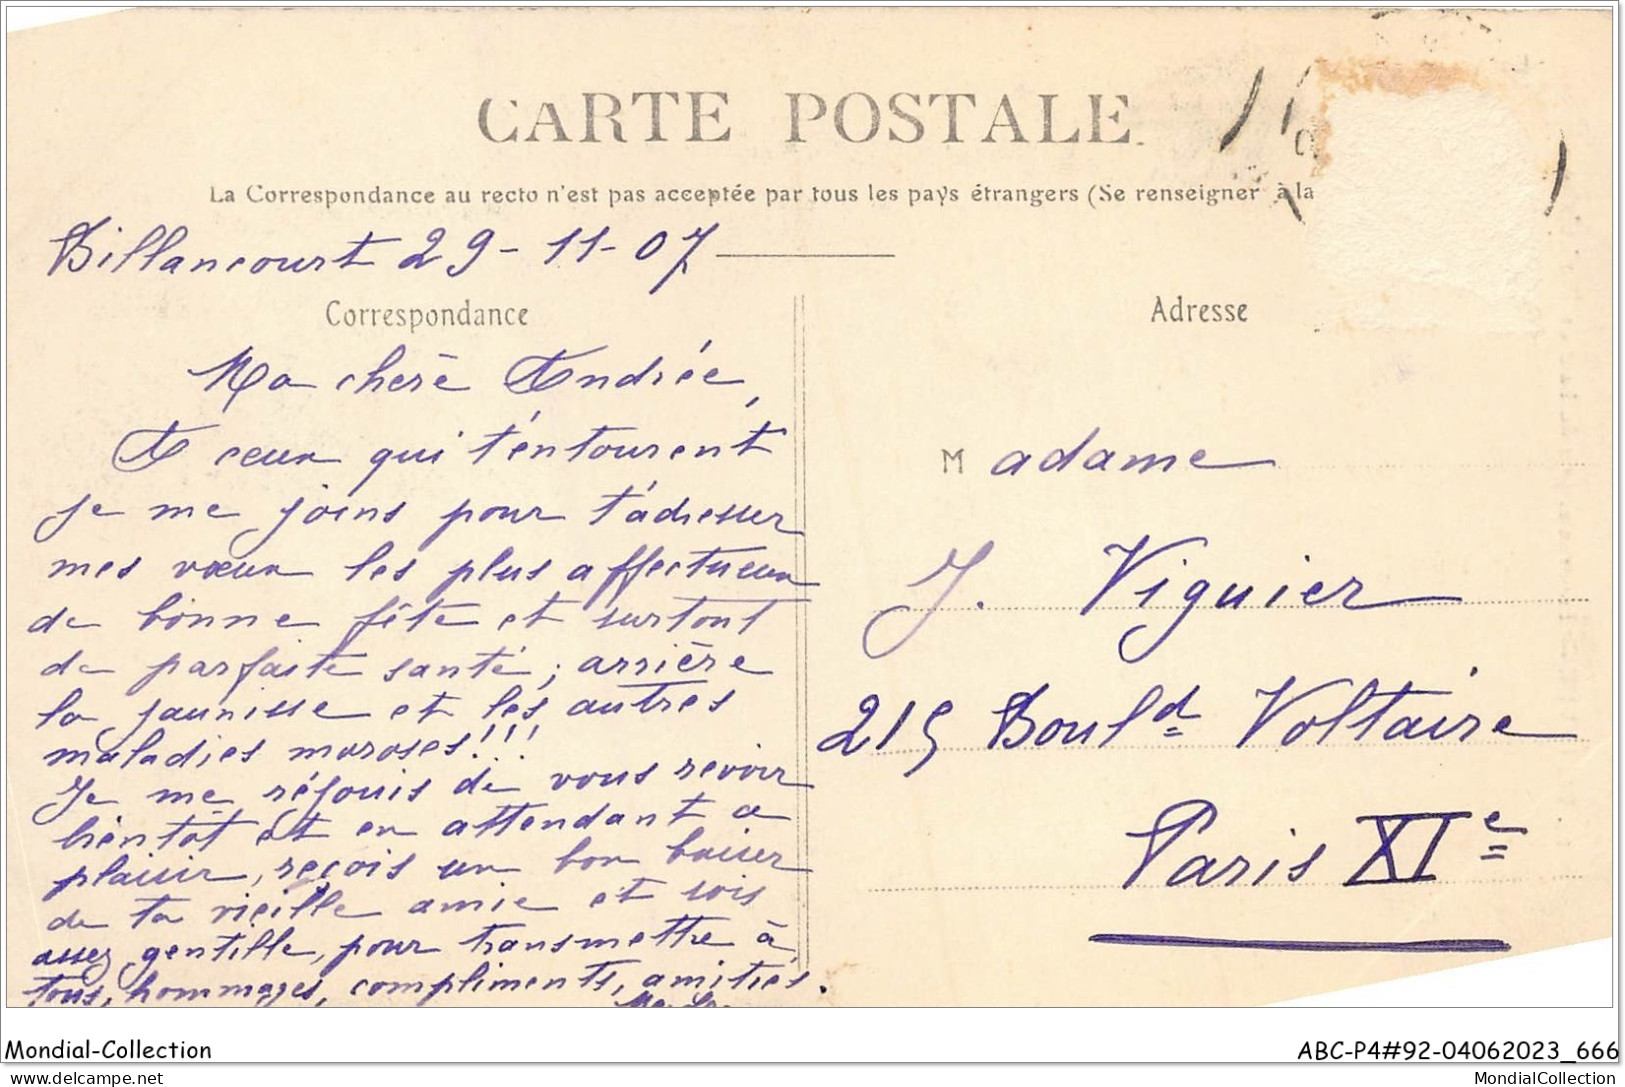 CARTE POSTALE
La Correspondance au recto n'est pas acceptée par tous les pays étrangers (Se renseigner à la
Billancourt 29-11-07
Correspondance
Ma chère Andrée,
A ceux qui t'entourent
je me joins pour t'adresser
mes vœux les plus affectueux
de bonne fête et surtout
de parfaite santé; arrière
la jaunisse et les autres
maladies moroses!!!
Je me réjouis de vous revoir
bientôt et en attendant ce
plaisir, reçois un bon baiser
de ta vieille amie et sois
assez gentille, pour transmettre à
tous, hommages, compliments, amitiés.
Adresse
Madame
J. Viguier
215 Boul.d Voltaire
Paris XIe
Mondial-Collection
ABC-P4#92-04062023_666
www.delcampe.net
MondialCollection